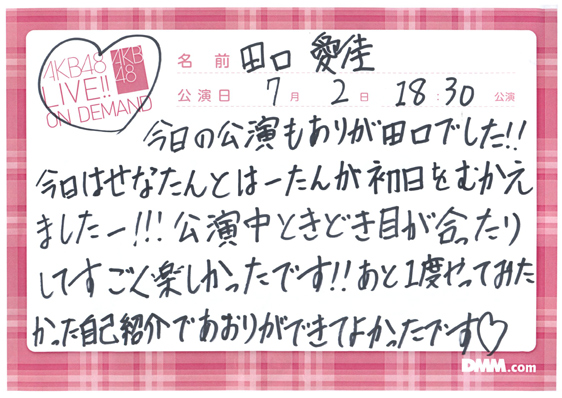 AKB48
LIVE!!
ON DEMAND
AKB
48
名前 田口 愛佳
公演日 7月 2日 18:30 公演
今日の公演もありが田口でした!!
今日はせなたんとはーたんが初日をむかえ
ましたー!!!公演中ときどき目が合ったり
してすごく楽しかったです!!あと1度やってみた
かった自己紹介であおりができてよかったです♡
DMM.com